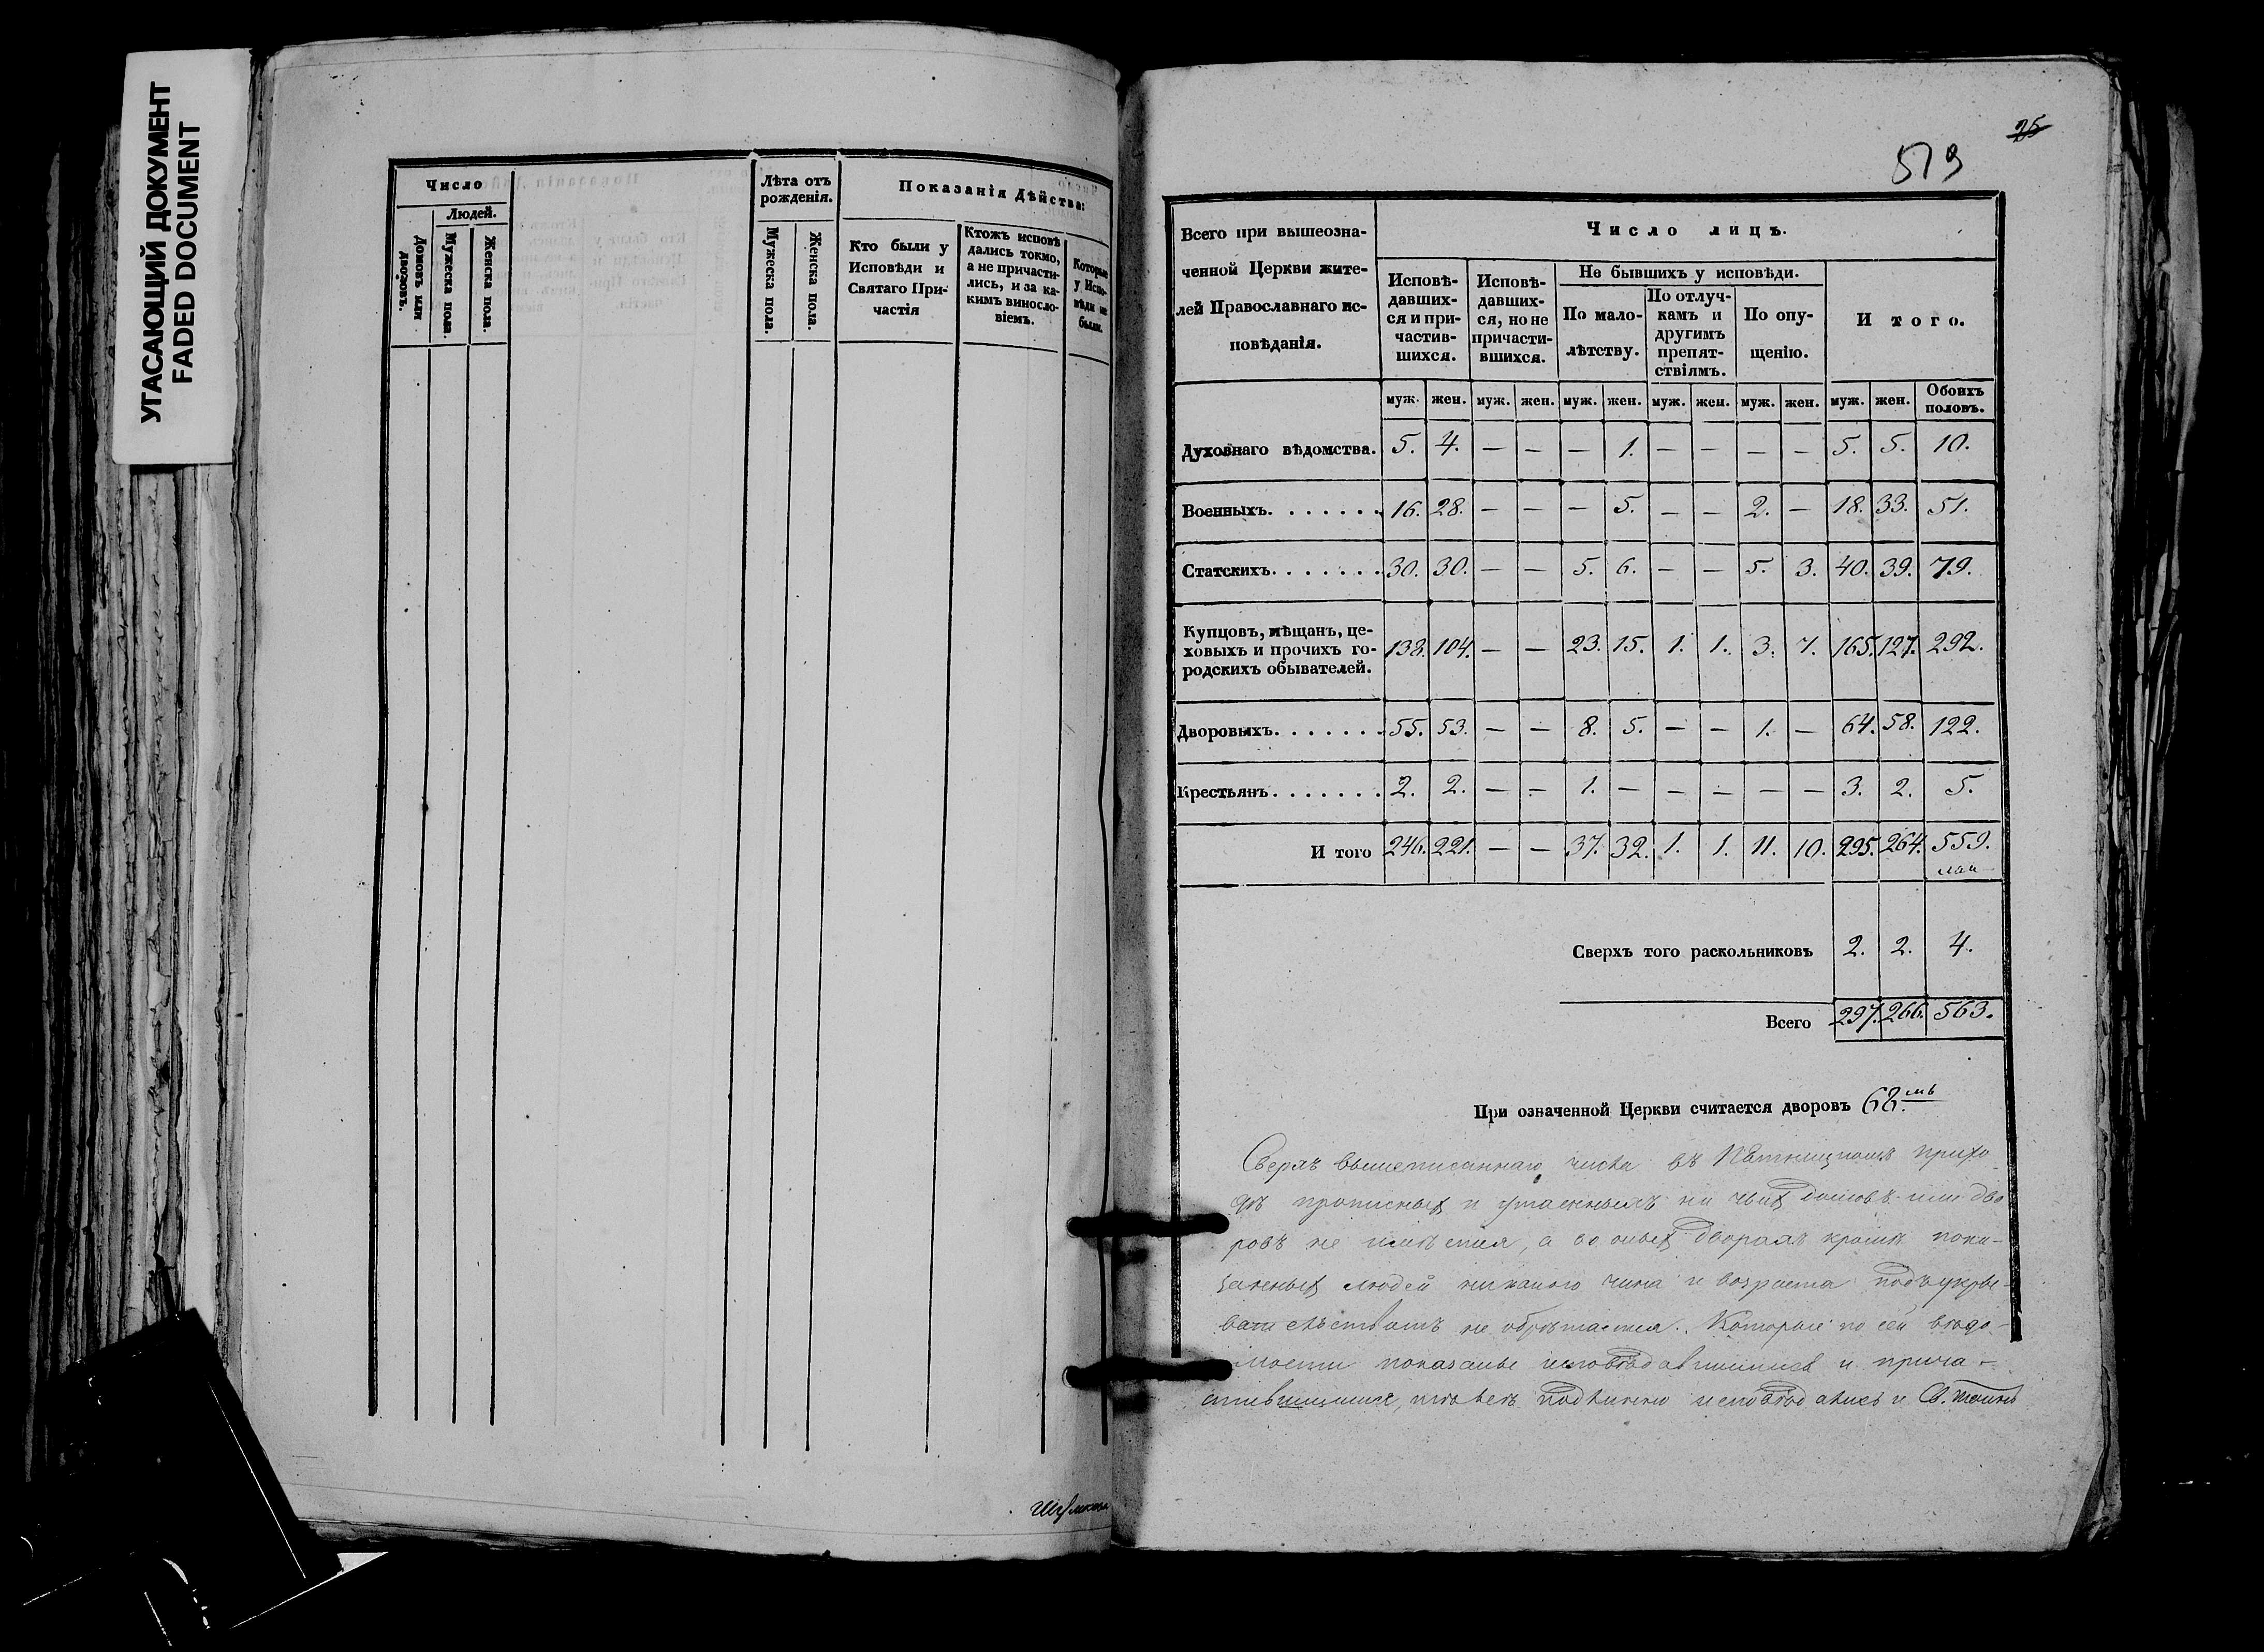 УГАСАЮЩИЙ ДОКУМЕНТ
FADED DOCUMENT
Число
Людей.
Домовъ или дворовъ.
Мужеска пола.
Женска пола.
Лѣта отъ
рожденія.
Мужеска пола.
Женска пола.
Показанія Дѣйства:
Кто были у
Исповѣди и
Святаго При-
частія
Ктожъ исповѣ
дались токмо,
а не причасти-
лись, и за ка-
кимъ виносло-
віемъ.
Которые
у Испо-
вѣди не
были.
25
519
Всего при вышеозна-
ченной Церкви жите-
лей Православнаго ис-
повѣданія.
Число лицъ.
Исповѣ-
давших-
ся и при-
частив-
шихся.
Исповѣ-
давших-
ся, но не
причасти-
вшихся.
Не бывшихъ у исповѣди.
По мало-
лѣтству.
По отлуч-
камъ и
другимъ
препят-
ствіямъ.
По опу-
щенію.
И того.
муж. жен. муж. жен. муж. жен. муж. жен. муж. жен. муж. жен. Обоихъ
половъ.
Духовнаго вѣдомства. 5. 4. — — — 1. — — — — 5. 5. 10.
Военныхъ. . . . . . . 16. 28. — — — 5. — — 2. — 18. 33. 51.
Статскихъ. . . . . . . 30. 30. — — 5. 6. — — 5. 3. 40. 39. 79.
Купцовъ, мѣщанъ, це-
ховыхъ и прочихъ го-
родскихъ обывателей.
138. 104. — — 23. 15. 1. 1. 3. 7. 165. 127. 292.
Дворовыхъ. . . . . . . 55. 53. — — 8. 5. — — 1. — 64. 58. 122.
Крестьянъ. . . . . . . 2. 2. — — 1. — — — — — 3. 2. 5.
И того 246. 221. — — 37. 32. 1. 1. 11. 10. 295. 264. 559.
Сверхъ того раскольниковъ 2. 2. 4.
Всего 297. 266. 563.
При означенной Церкви считается дворовъ 68.мь
Сверхъ вышеписаннаго числа въ Пятницкомъ прихо-
дѣ прописныхъ и утаенныхъ ни чьихъ домовъ или дво
ровъ не имѣется, а во оныхъ дворахъ кромѣ пока-
занныхъ людей никакого чина и возраста подъ укры-
вательствомъ не обрѣтается. Которые по сей вѣдо-
мости показаны исповѣдавшимися и прича-
стившимися, тѣ всѣ подлинно исповѣдались и Св. Таинъ